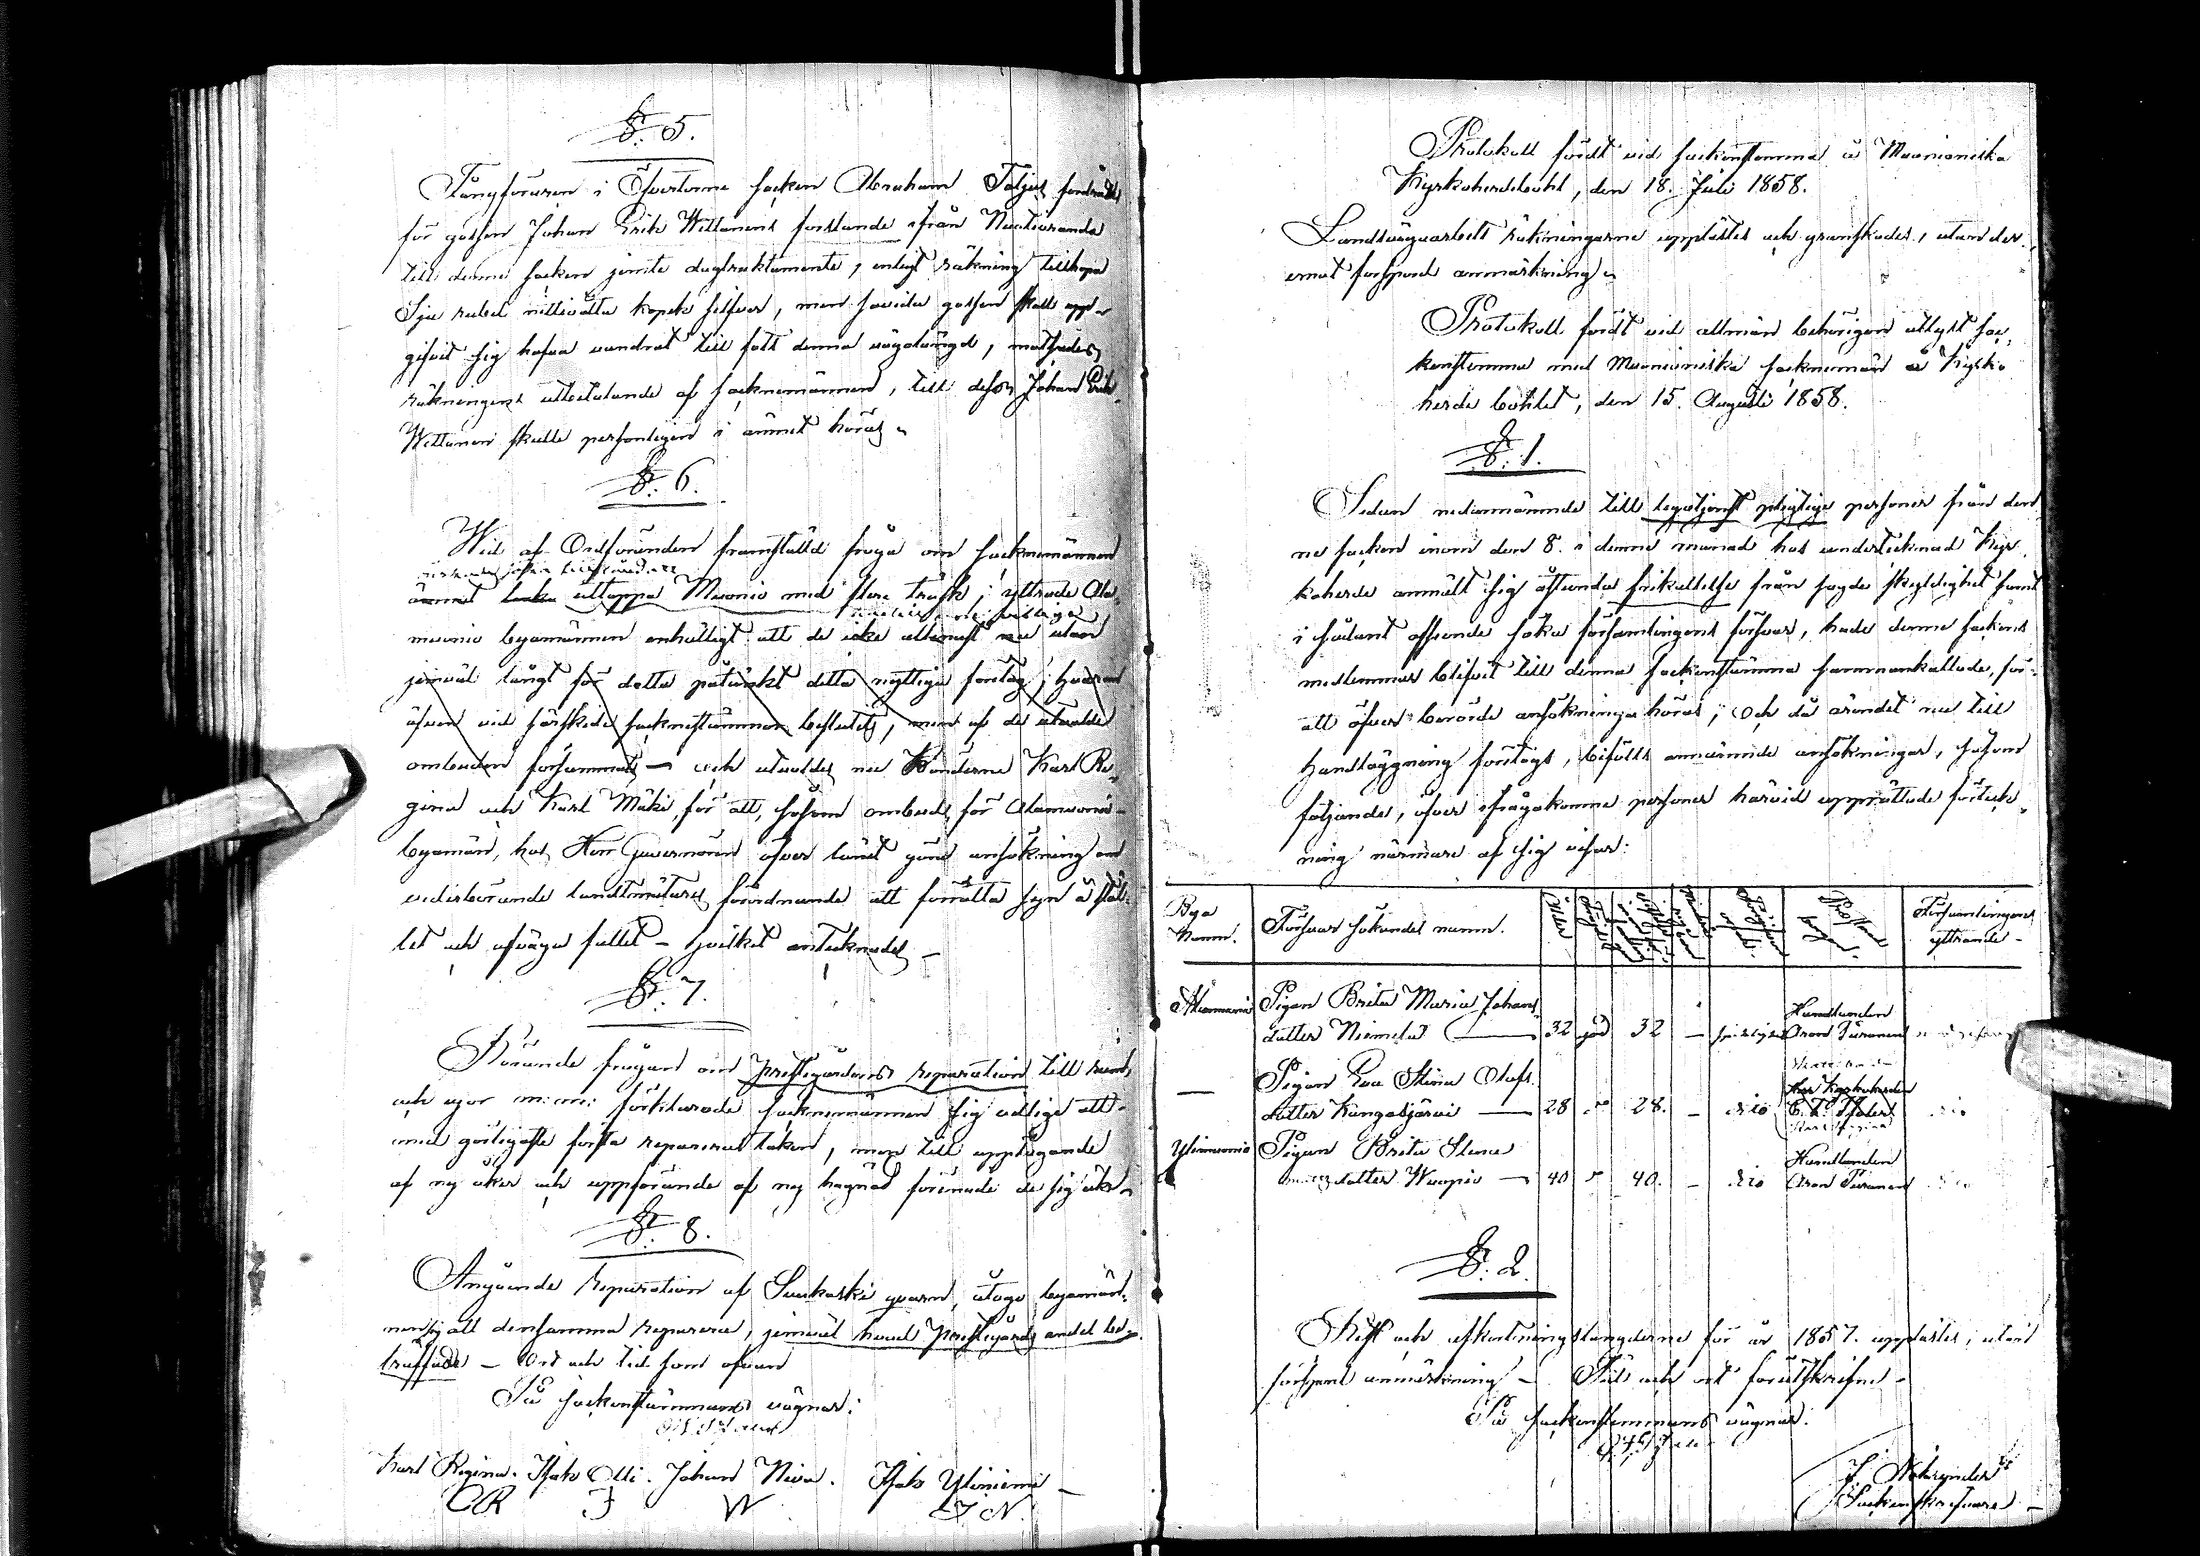 §. 5.
Fångföraren i Öfvertorne socken Abraham Taljus fordrade
för gossen Johan Erik Wittanens forslande ifrån Neutioranda
till denna socken jemte dagtraktamente, enligt räkning tillhopa
Sju rubel nittioåtta kopek silfver, men savida gossen skall upp-
gifvit sig hafva vandrat till fots denna vägalängd, motsades
räkningens utbetalande af socknemännen, till dess Johan Erik
Wittanen skulle personligen i ämnet höras.
§. 6.
Wid af Ordföranden framställd fråga om socknemännen
ämnat uttappa Muonio med flere träsk, yttrade Ala-
muonio byamännen enhälligt att de icke allenast nu utan
jemväl långt för detta påtänkt detta nyttiga företag, hvarom
äfven vid särskilde socknestämmor beslutits, men af de utvalde
ombuden försummats — och utvaldes nu Bönderne Karl Re-
gina och Karl Mäki för att, såsom ombud för Alamuonio
byamän, hos Herr Guvernören öfver länet göra ansökning om
vederbörande landtmätares förordnande att förrätta syn å stäl-
let och afväga fallet — hvilket antecknades —
§. 7.
Rörande frågan om prestgårdens reparation till hus,
och åjor m: m: förklarade socknemännen sig villige att
med görligaste första reparera taken, men till upptagande
af ny åker och uppförande af ny hägnad förenade de sig icke.
§. 8.
Angående reparation af Suukoski qvarn, åtogo byamän-
nen sig att densamma reparera, jemväl hvad Prestgårds andel be-
träffade — Ort och tid som ofvan
På sockenstämmans vägnar:
Karl Regina. Isak Olli. Johan Niva. Isak Yliniemi —
CR I W I N.
Protokoll fördt vid sockenstämma å Muonioniska
Kyrkoherdebohl, den 18. Juli 1858.
Landsvägsarbets räkningarne upplästes och granskades, utan der-
emot försport anmärkning.
Protokoll fördt vid allmän behörigen utlyst soc-
kenstemma med Muonioniska socknemän å Kyrko-
herde bohlet, den 15. Augusti 1858.
§. 1.
Sedan nedannämnde till legotjenst pligtige personer från den-
na socken inom den 8. i denna månad hos undertecknad Kyr-
koherde anmält sig åstunda frikallelse från sagde skyldighet samt
i sådant afseende söka församlingens försvar, hade denna sockens
medlemmar blifvit till denna sockenstämma sammankallade, för
att öfver berörde ansökningar höras; och då ärendet nu till
handläggning företogs, biföllts annämnde ansökningar, såsom
följande, öfver ifrågakomne personer härvid upprättade förteck-
ning närmare af sig visar:
Bya Namn. Försvar sökandes namn. Ålder Församlingens yttrande —
Alamuonio Pigan Brita Maria Johans dotter Niemelä — 32 god 32 — Handlanden Aron Turonen
— Pigan Eva Stina Olofs dotter Kangosjärvi — 28 28. — dito Herr Kyrkoherden
Ylimuonio Pigan Brita Stina dotter Wuopio — 40 40. — dito Handlanden Aron Turonen
§. 2.
Skått och afkortningslängderne för år 1857. upplästes, utan
försport anmärkning — Tid och ort förutskrifne.
På sockenstemmans vägnar:
Sockenskrifvare —